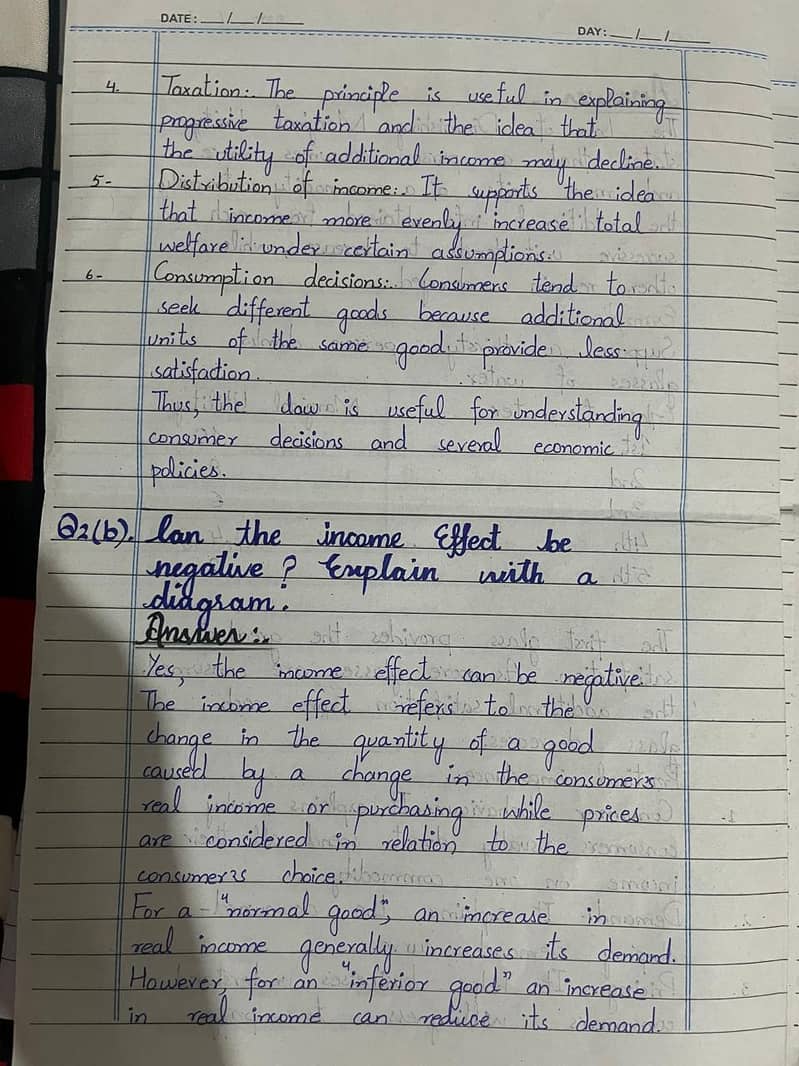 DATE: __/__/____
DAY: __/__/____
4. Taxation:. The principle is useful in explaining
progressive taxation and the idea that
the utility of additional income may decline.
5- Distribution of income:. It supports the idea
that income more evenly increase total
welfare under certain assumptions.
6- Consumption decisions:. Consumers tend to
seek different goods because additional
units of the same good provide less
satisfaction.
Thus, the law is useful for understanding
consumer decisions and several economic
policies.
Q2(b). Can the income Effect be
negative? Explain with a
diagram.
Answer:.
Yes, the income effect can be negative.
The income effect refers to the
change in the quantity of a good
caused by a change in the consumer's
real income or purchasing while prices
are considered in relation to the
consumer's choice.
For a "normal good", an increase in
real income generally increases its demand.
However, for an "inferior good" an increase
in real income can reduce its demand.